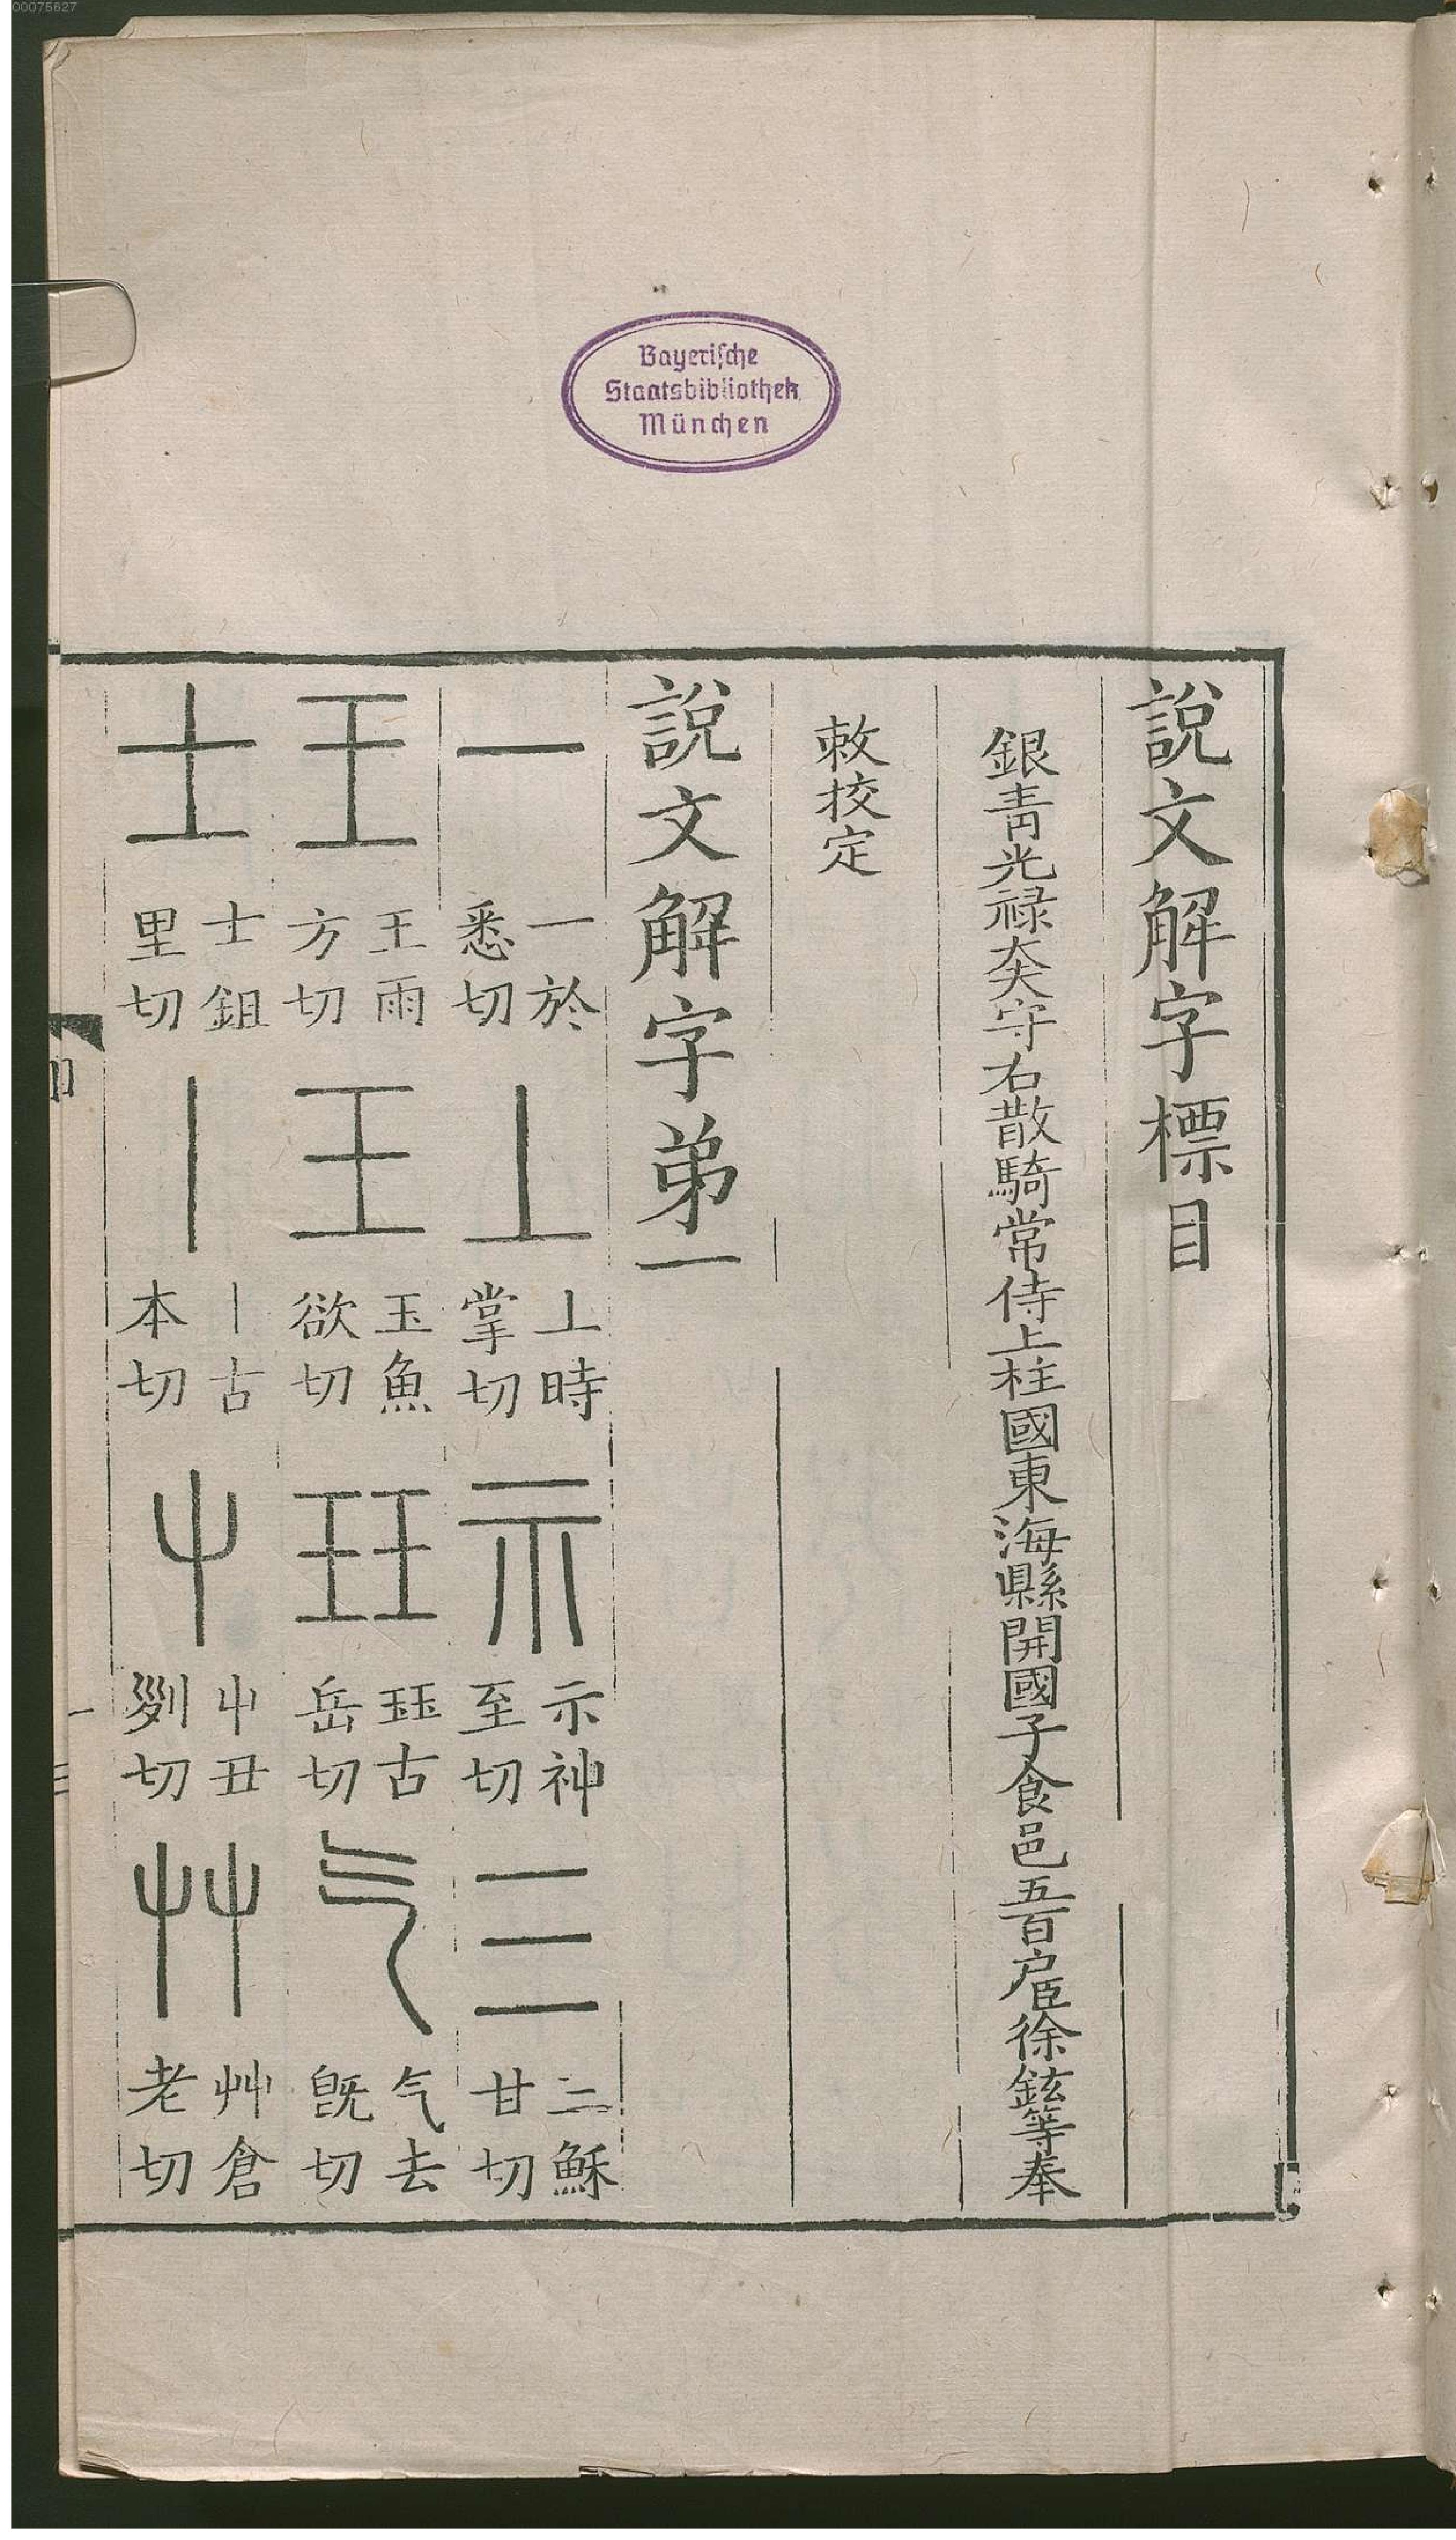 00075627
Bayerische
Staatsbibliothek
München
說文解字標目
銀青光祿大夫守右散騎常侍上柱國東海縣開國子食邑五百户臣徐鉉等奉
敕挍定
說文解字弟一
一 一於悉切 丄 丄時掌切 示 示神至切 三 三穌甘切
王 王雨方切 王 玉魚欲切 玨 玨古岳切 气 气去旣切
士 士鉏里切 丨 丨古本切 屮 屮丑列切 艸 艸倉老切